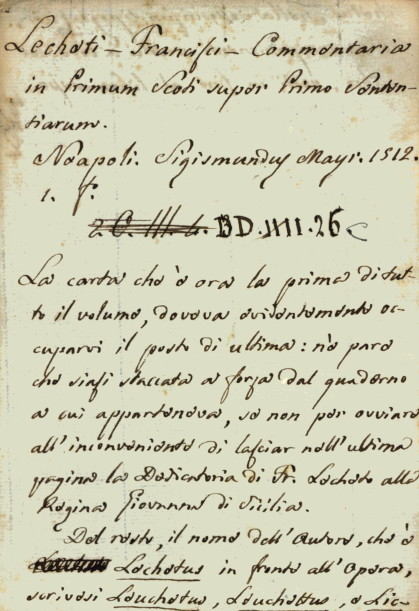 Lecheti - Francisci - Commentaria
in Primum Scoti super Primo Senten-
tiarum.
Neapoli. Sigismundus Mayr. 1512.
1. f.
2. C. III. 4. BD.IIII.26.
La carta che è ora la prima di tut-
to il volume, doveva evidentemente oc-
cuparvi il posto di ultima: nè pare
che siasi staccata a forza dal quaderno
a cui apparteneva, se non per ovviare
all'inconveniente di lasciar nell'ultima
pagina la Dedicatoria di Fr. Lecheto alla
Regina Giovanna di Sicilia.
Del resto, il nome dell'Autore, che è
Lechetus in fronte all'Opera,
scrivesi Leuchetus, Leuchettus, e Lic-